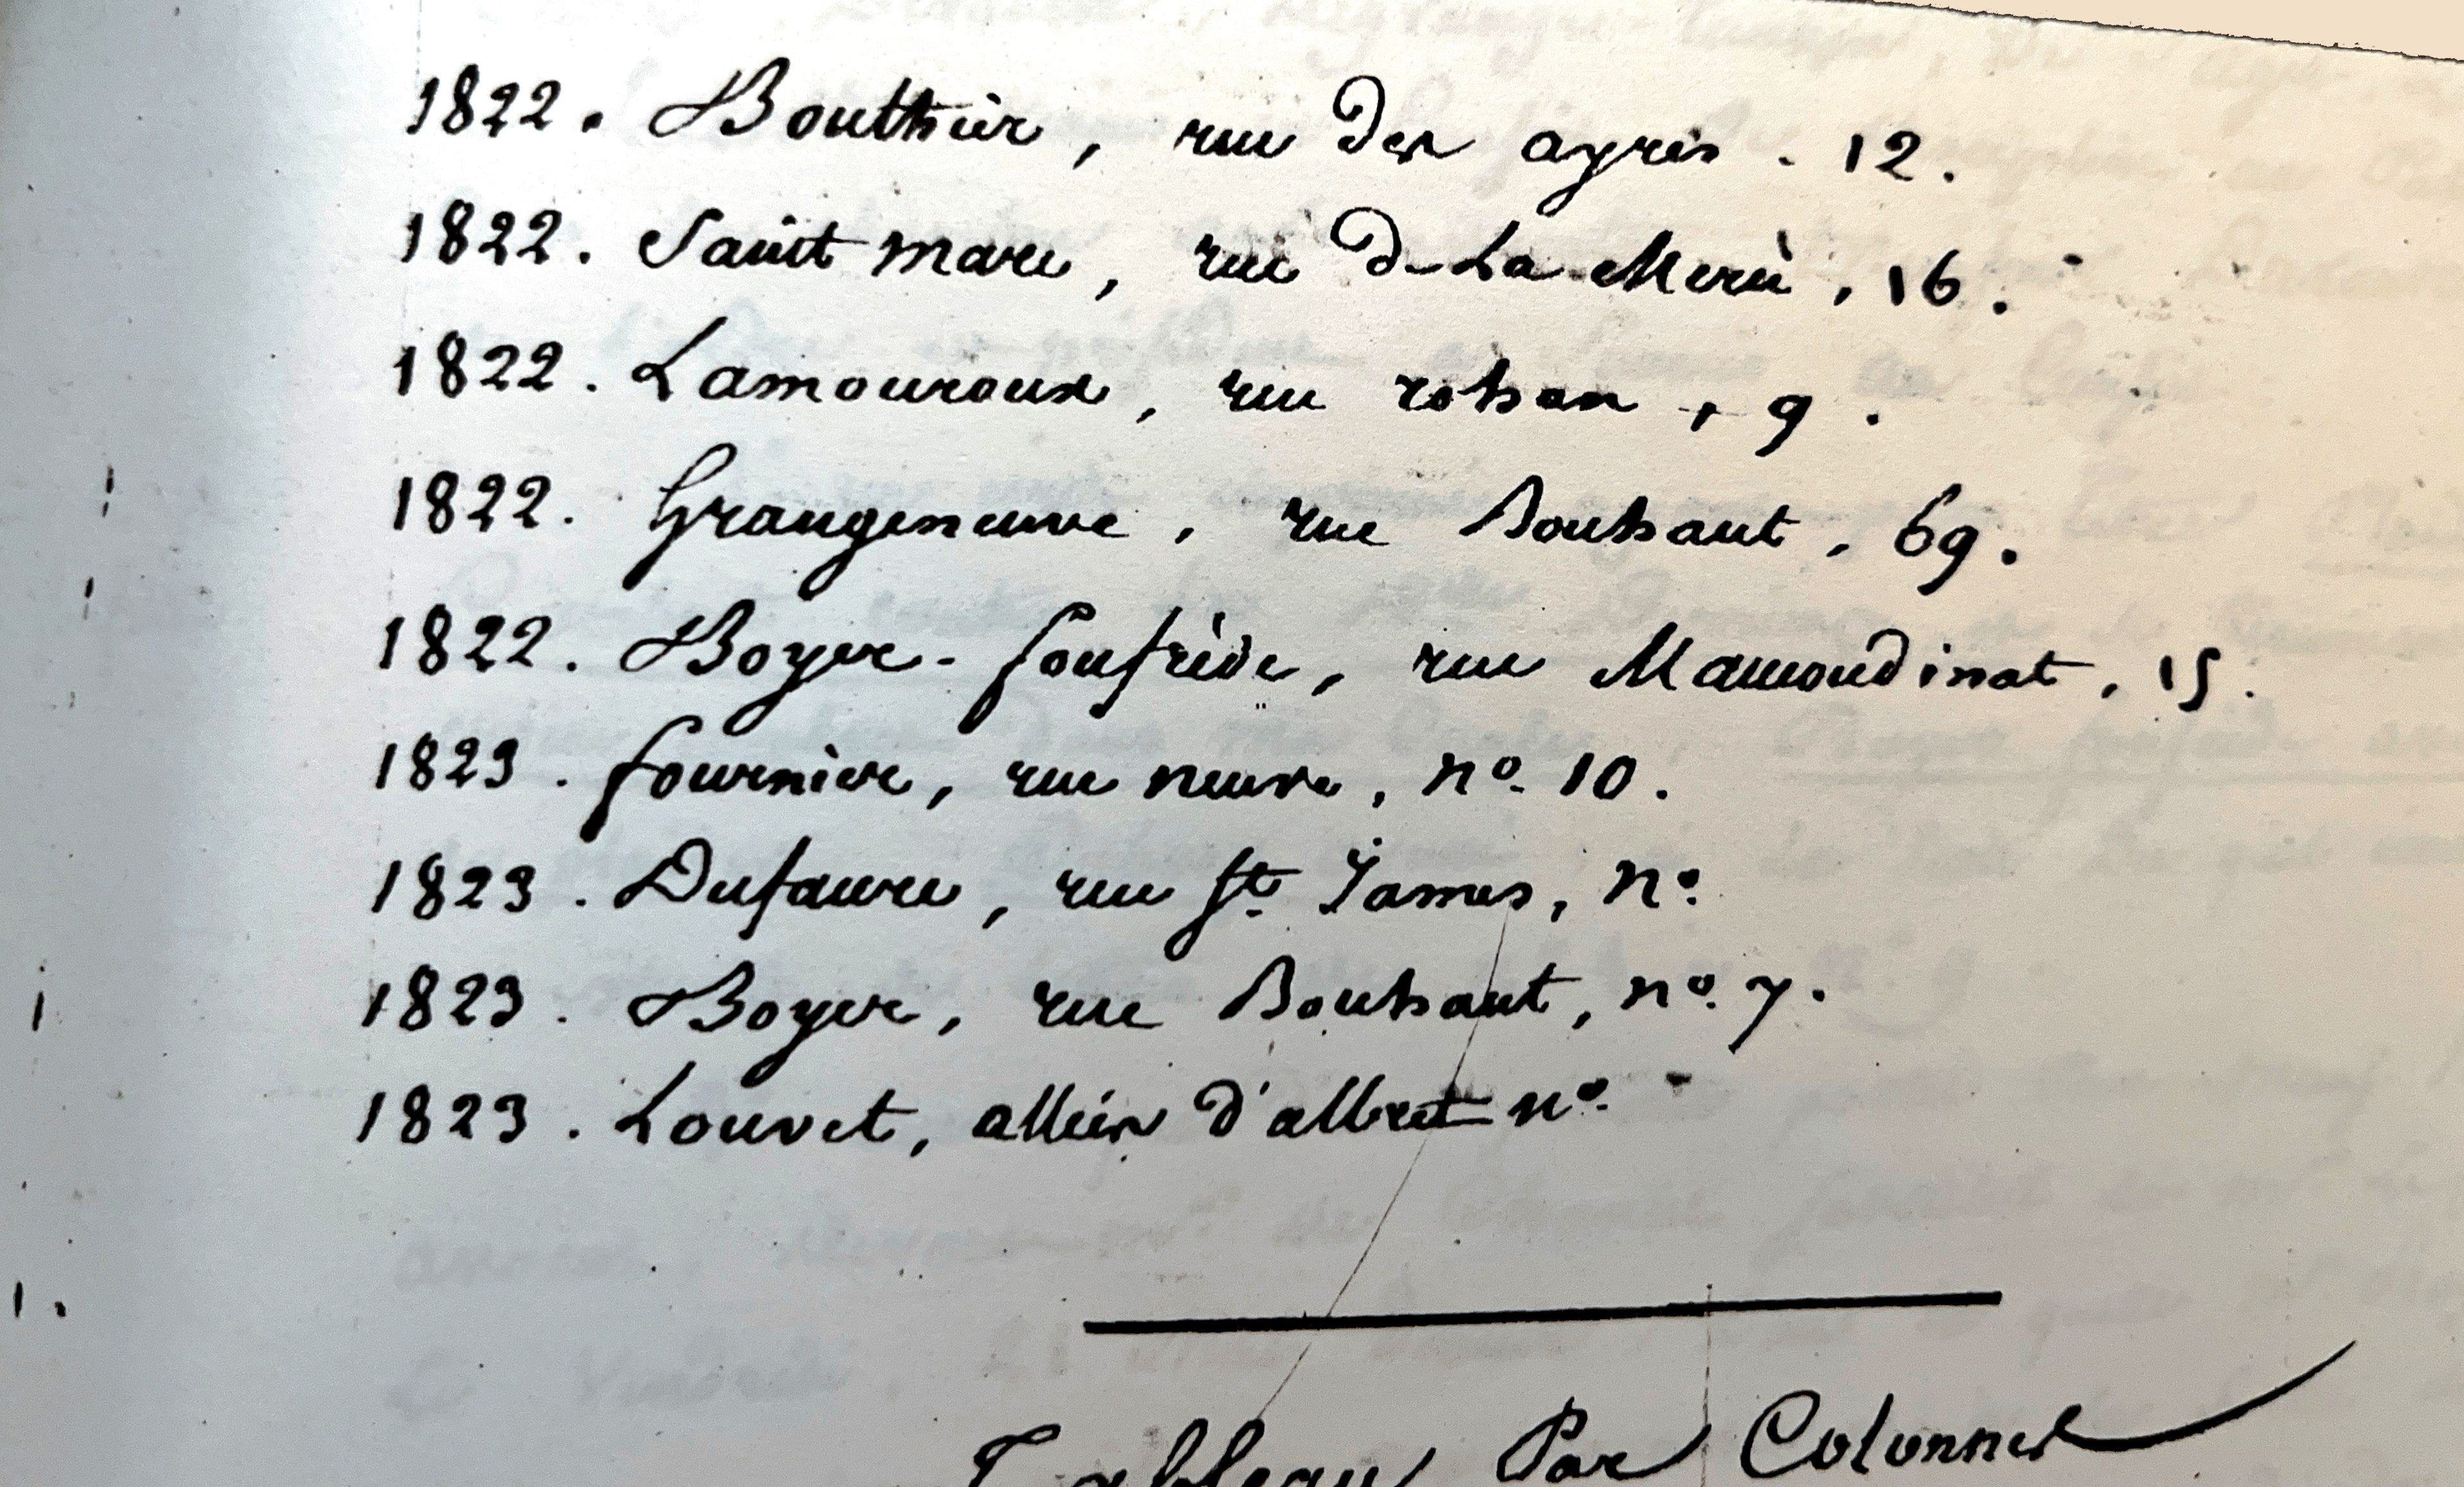 1822. Bouthier, rue des ayres. 12.
1822. Saint marc, rue de La Merci, 16.
1822. Lamouroux, rue rohan, 9.
1822. Grangeneuve, rue Bouhaut, 69.
1822. Boyer-fonfrède, rue Mamoudinat, 15.
1823. fournier, rue neuve, nº. 10.
1823. Dufaure, rue St. James, nº.
1823. Boyer, rue Bouhaut, nº. 7.
1823. Louvet, allées d'albret nº.
Tableau Par Colonnes